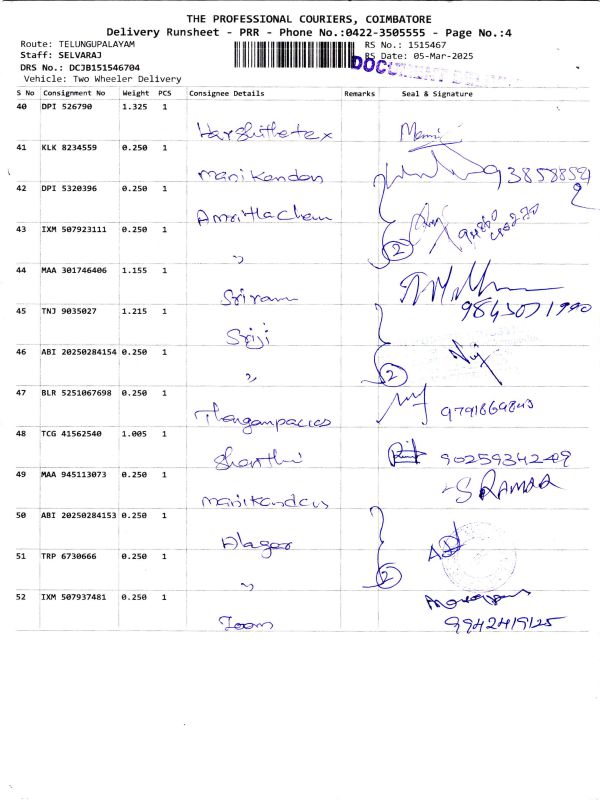 THE PROFESSIONAL COURIERS, COIMBATORE
Delivery Runsheet - PRR - Phone No.:0422-3505555 - Page No.:4
Route: TELUNGUPALAYAM RS No.: 1515467
Staff: SELVARAJ RS Date: 05-Mar-2025
DRS No.: DCJB151546704
Vehicle: Two Wheeler Delivery
S No Consignment No Weight PCS Consignee Details Remarks Seal & Signature
40 DPI 526790 1.325 1
41 KLK 8234559 0.250 1
Manikandan
42 DPI 5320396 0.250 1
43 IXM 507923111 0.250 1
" 2
44 MAA 301746406 1.155 1
Sriram
9843071990
45 TNJ 9035027 1.215 1
Sriji
46 ABI 20250284154 0.250 1
" 2
47 BLR 5251067698 0.250 1
48 TCG 41562540 1.005 1
Shanthi 9025934249
49 MAA 945113073 0.250 1
Manikandan
50 ABI 20250284153 0.250 1
Alagar
51 TRP 6730666 0.250 1
" 2
52 IXM 507937481 0.250 1
9942419125